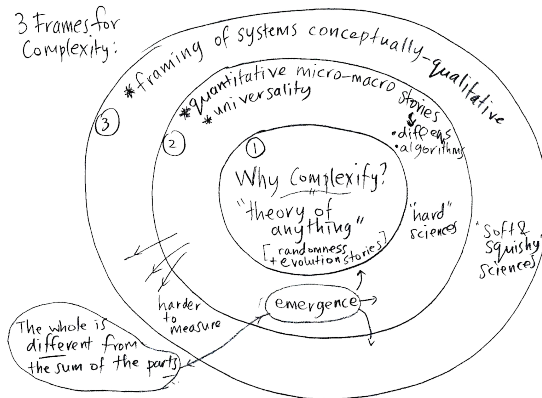 3 Frames for
Complexity:
*framing of systems conceptually-qualitative
3
*quantitative micro-macro stories
*universality
2
•diffeqs
•algorithms
1
Why Complexify?
"theory of
anything"
[randomness
+evolution stories]
"hard"
sciences
"Soft &
Squishy"
sciences
harder
to
measure
emergence
The whole is
different from
the sum of the parts